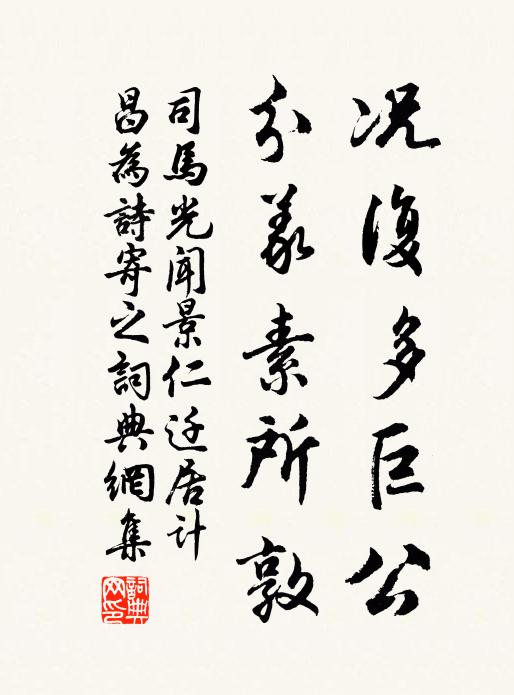 况復多巨公
分義素所敦
司馬光聞景仁迁居許
昌為詩寄之詞典網集
詞典网印